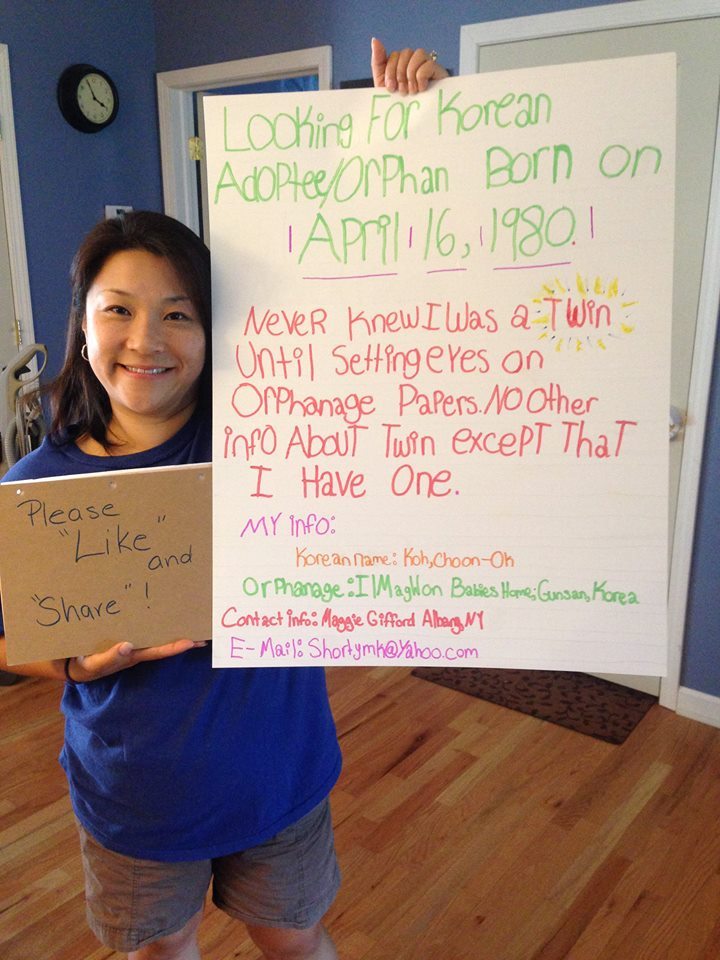 Looking For Korean
Adoptee/Orphan Born on
April 16, 1980.
Never Knew I Was a Twin
Until Setting eyes on
Orphanage Papers. No Other
info About Twin except That
I Have One.
My info:
Korean name: Koh, Choon-Ok
Orphanage: Il Mag Won Babies Home; Gunsan, Korea
Contact info: Maggie Gifford Albany, NY
E-Mail: Shortymk@yahoo.com
Please
"Like"
and
"Share"!